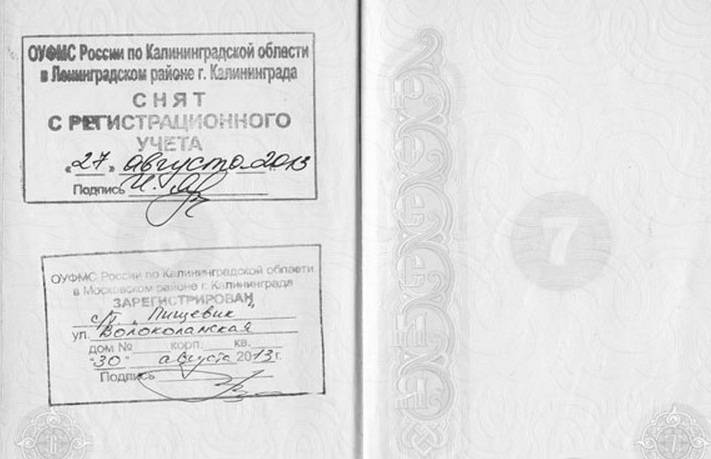 ОУФМС России по Калининградской области
в Ленинградском районе г. Калининграда
СНЯТ
С РЕГИСТРАЦИОННОГО
УЧЕТА
«27» августа 2013
Подпись
ОУФМС России по Калининградской области
в Московском районе г. Калининграда
ЗАРЕГИСТРИРОВАН
с/т "Пищевик"
ул. Волоколамская
дом № корп. кв.
"30" августа 2013 г.
Подпись
6
7
7